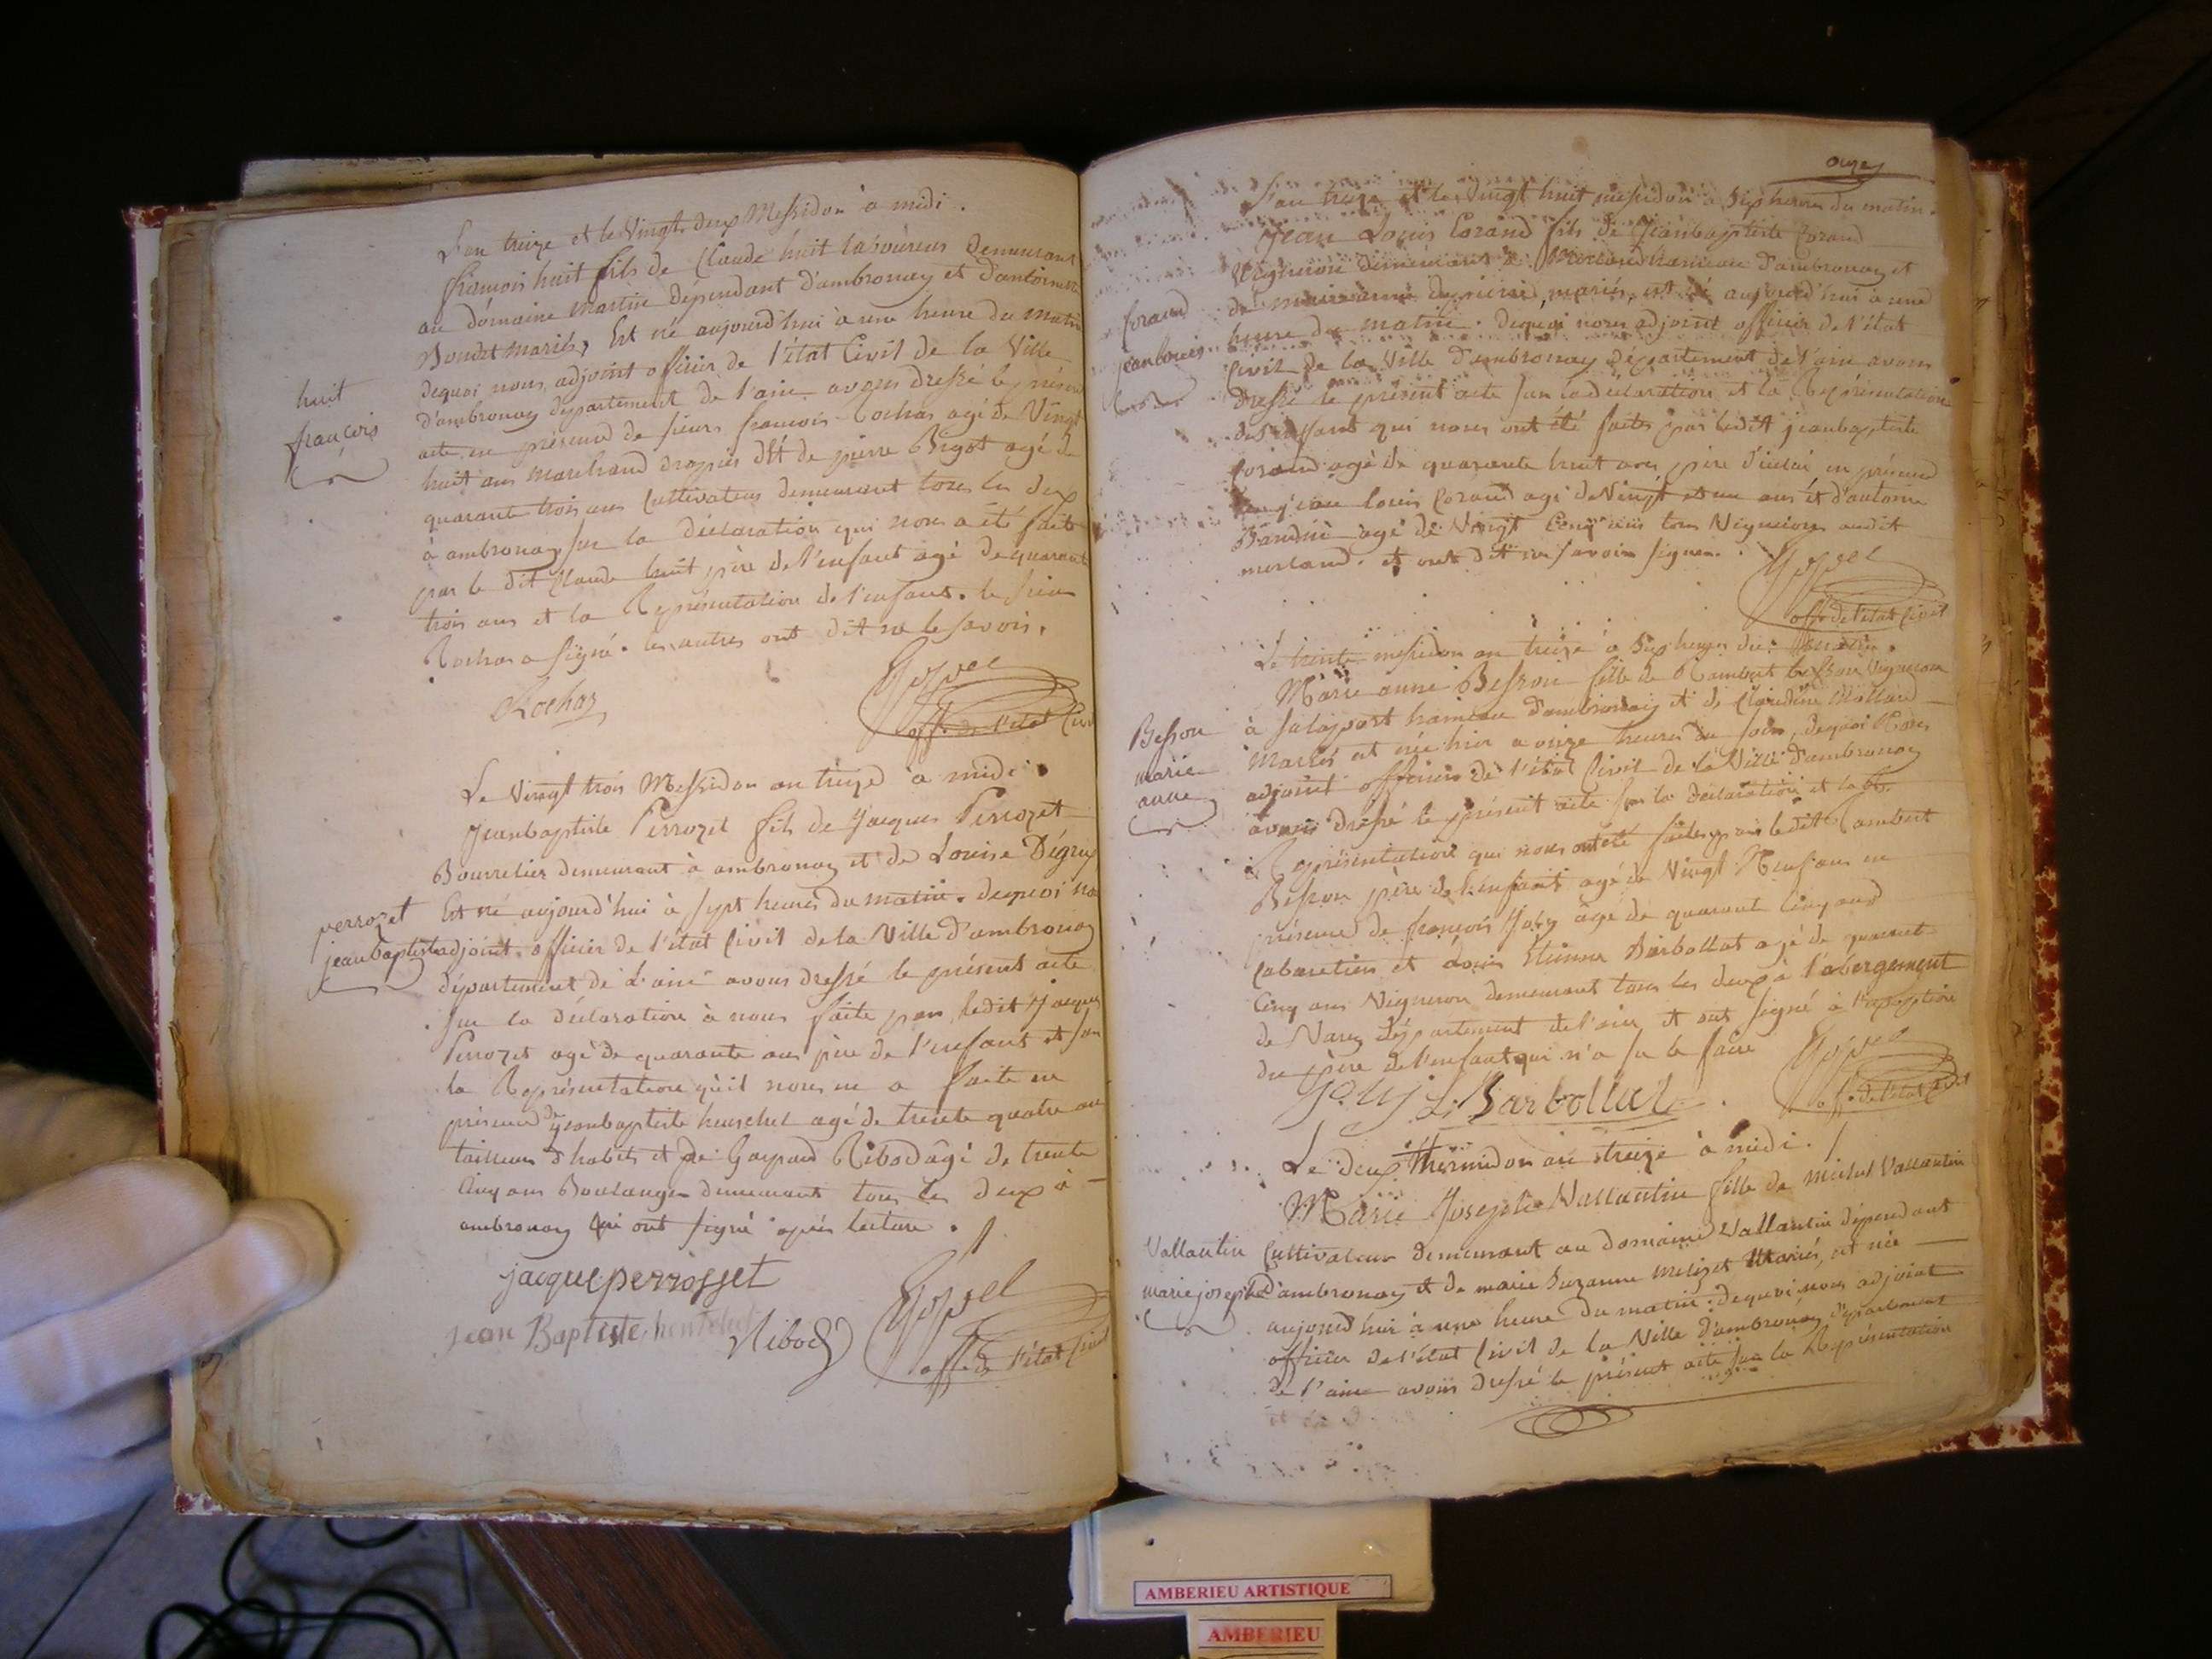 L'an treize et le Vingt deux Messidor à midi.
françois huit fils de Claude huit laboureur Demeurant
au domaine martin dépendant d'ambronay et d'antoinette
Boudet mariés, Est né aujourd'hui à une heure du matin
dequoi nous adjoint officier de l'état Civil de la Ville
d'ambronay département de l'ain avons dressé le présent
huit
françois
acte, en présence de sieurs françois Rochas agé de Vingt
huit ans marchand drapier Et de pierre Bigot agé de
quarante trois ans Cultivateur demeurant tous les deux
à ambronay sur la déclaration qui nous a été faite
par le dit Claude huit père de l'enfant agé de quarante
trois ans et la Représentation de l'enfant. le sieur
Rochas a signé. les autres ont dit ne le savoir.
Rochas
off. de l'état Civil
Le Vingt trois Messidor an treize à midi.
Jeanbaptiste Perrozet fils de Jacques Perrozet
Bourrelier demeurant à ambronay et de Louise
perrozet
jeanbaptiste
Est né aujourd'hui à sept heures du matin. dequoi nous
adjoint officier de l'état Civil de la Ville d'ambronay
département de L'ain avons dressé le présent acte
sur la déclaration à nous faite par ledit Jacques
Perrozet agé de quarante ans père de l'enfant et sur
la Représentation qu'il nous en a faite en
présence de jeanbaptiste agé de trente quatre ans
tailleur d'habits et de Gaspard Ribod agé de trente
Cinq ans Boulanger demeurant tous les deux à
ambronay qui ont signé après lecture.
jacque perrosset
jean Baptiste
Ribod
off. de l'état Civil
onze
L'an treize et le vingt huit messidor à Six heures du matin.
Jean Louis Corand fils de Jeanbaptiste Corand
Vigneron demeurant à Merland hameau d'ambronay et
de marieanne mariés, est né aujourd'hui à une
Corand
jeanlouis
heure du matin. dequoi nous adjoint officier de l'état
Civil de la Ville d'ambronay Département de l'ain avons
dressé le présent acte sur la déclaration et la Représentation
de l'enfant qui nous ont été faites par ledit jeanbaptiste
Corand agé de quarante huit ans père d'icelui en présence
de jean louis Corand agé de Vingt et un ans et d'antoine
agé de Vingt Cinq ans tous Vignerons audit
merland. et ont dit ne savoir signer.
off. de l'état Civil
Le trente messidor an treize à Six heures du matin.
Marie anne Besson fille de Rambert besson Vigneron
Besson
marie
anne
à Salaport hameau d'ambronay et de Claudine Mollard
Mariés est née hier à onze heures du soir, dequoi Nous
adjoint officier de l'état Civil de la Ville d'ambronay
avons dressé le présent acte sur la déclaration et la
Représentation qui nous ont été faites par ledit Rambert
Besson père de l'enfant agé de Vingt Neuf ans en
présence de françois Joly agé de quarante Cinq ans
Cabaretier et Louis Etienne Barbollat agé de quarante
Cinq ans Vigneron demeurant tous les deux à l'abergement
de Varey Département de l'ain et ont signé à l'exception
du père de l'enfant qui n'a su le faire
Joly L. Barbollat
off. de l'état Civil
Le deux Thermidor an treize à midi.
Marie Josephe Vallantin fille de michel Vallantin
Vallantin
marie josephe
Cultivateur demeurant au domaine Vallantin dépendant
d'ambronay et de marie Suzanne Mariés, est née
aujourd'hui à une heure du matin. dequoi nous adjoint
officier de l'état Civil de la Ville d'ambronay Département
de l'ain avons dressé le présent acte sur la Représentation
et la
AMBERIEU ARTISTIQUE
AMBERIEU